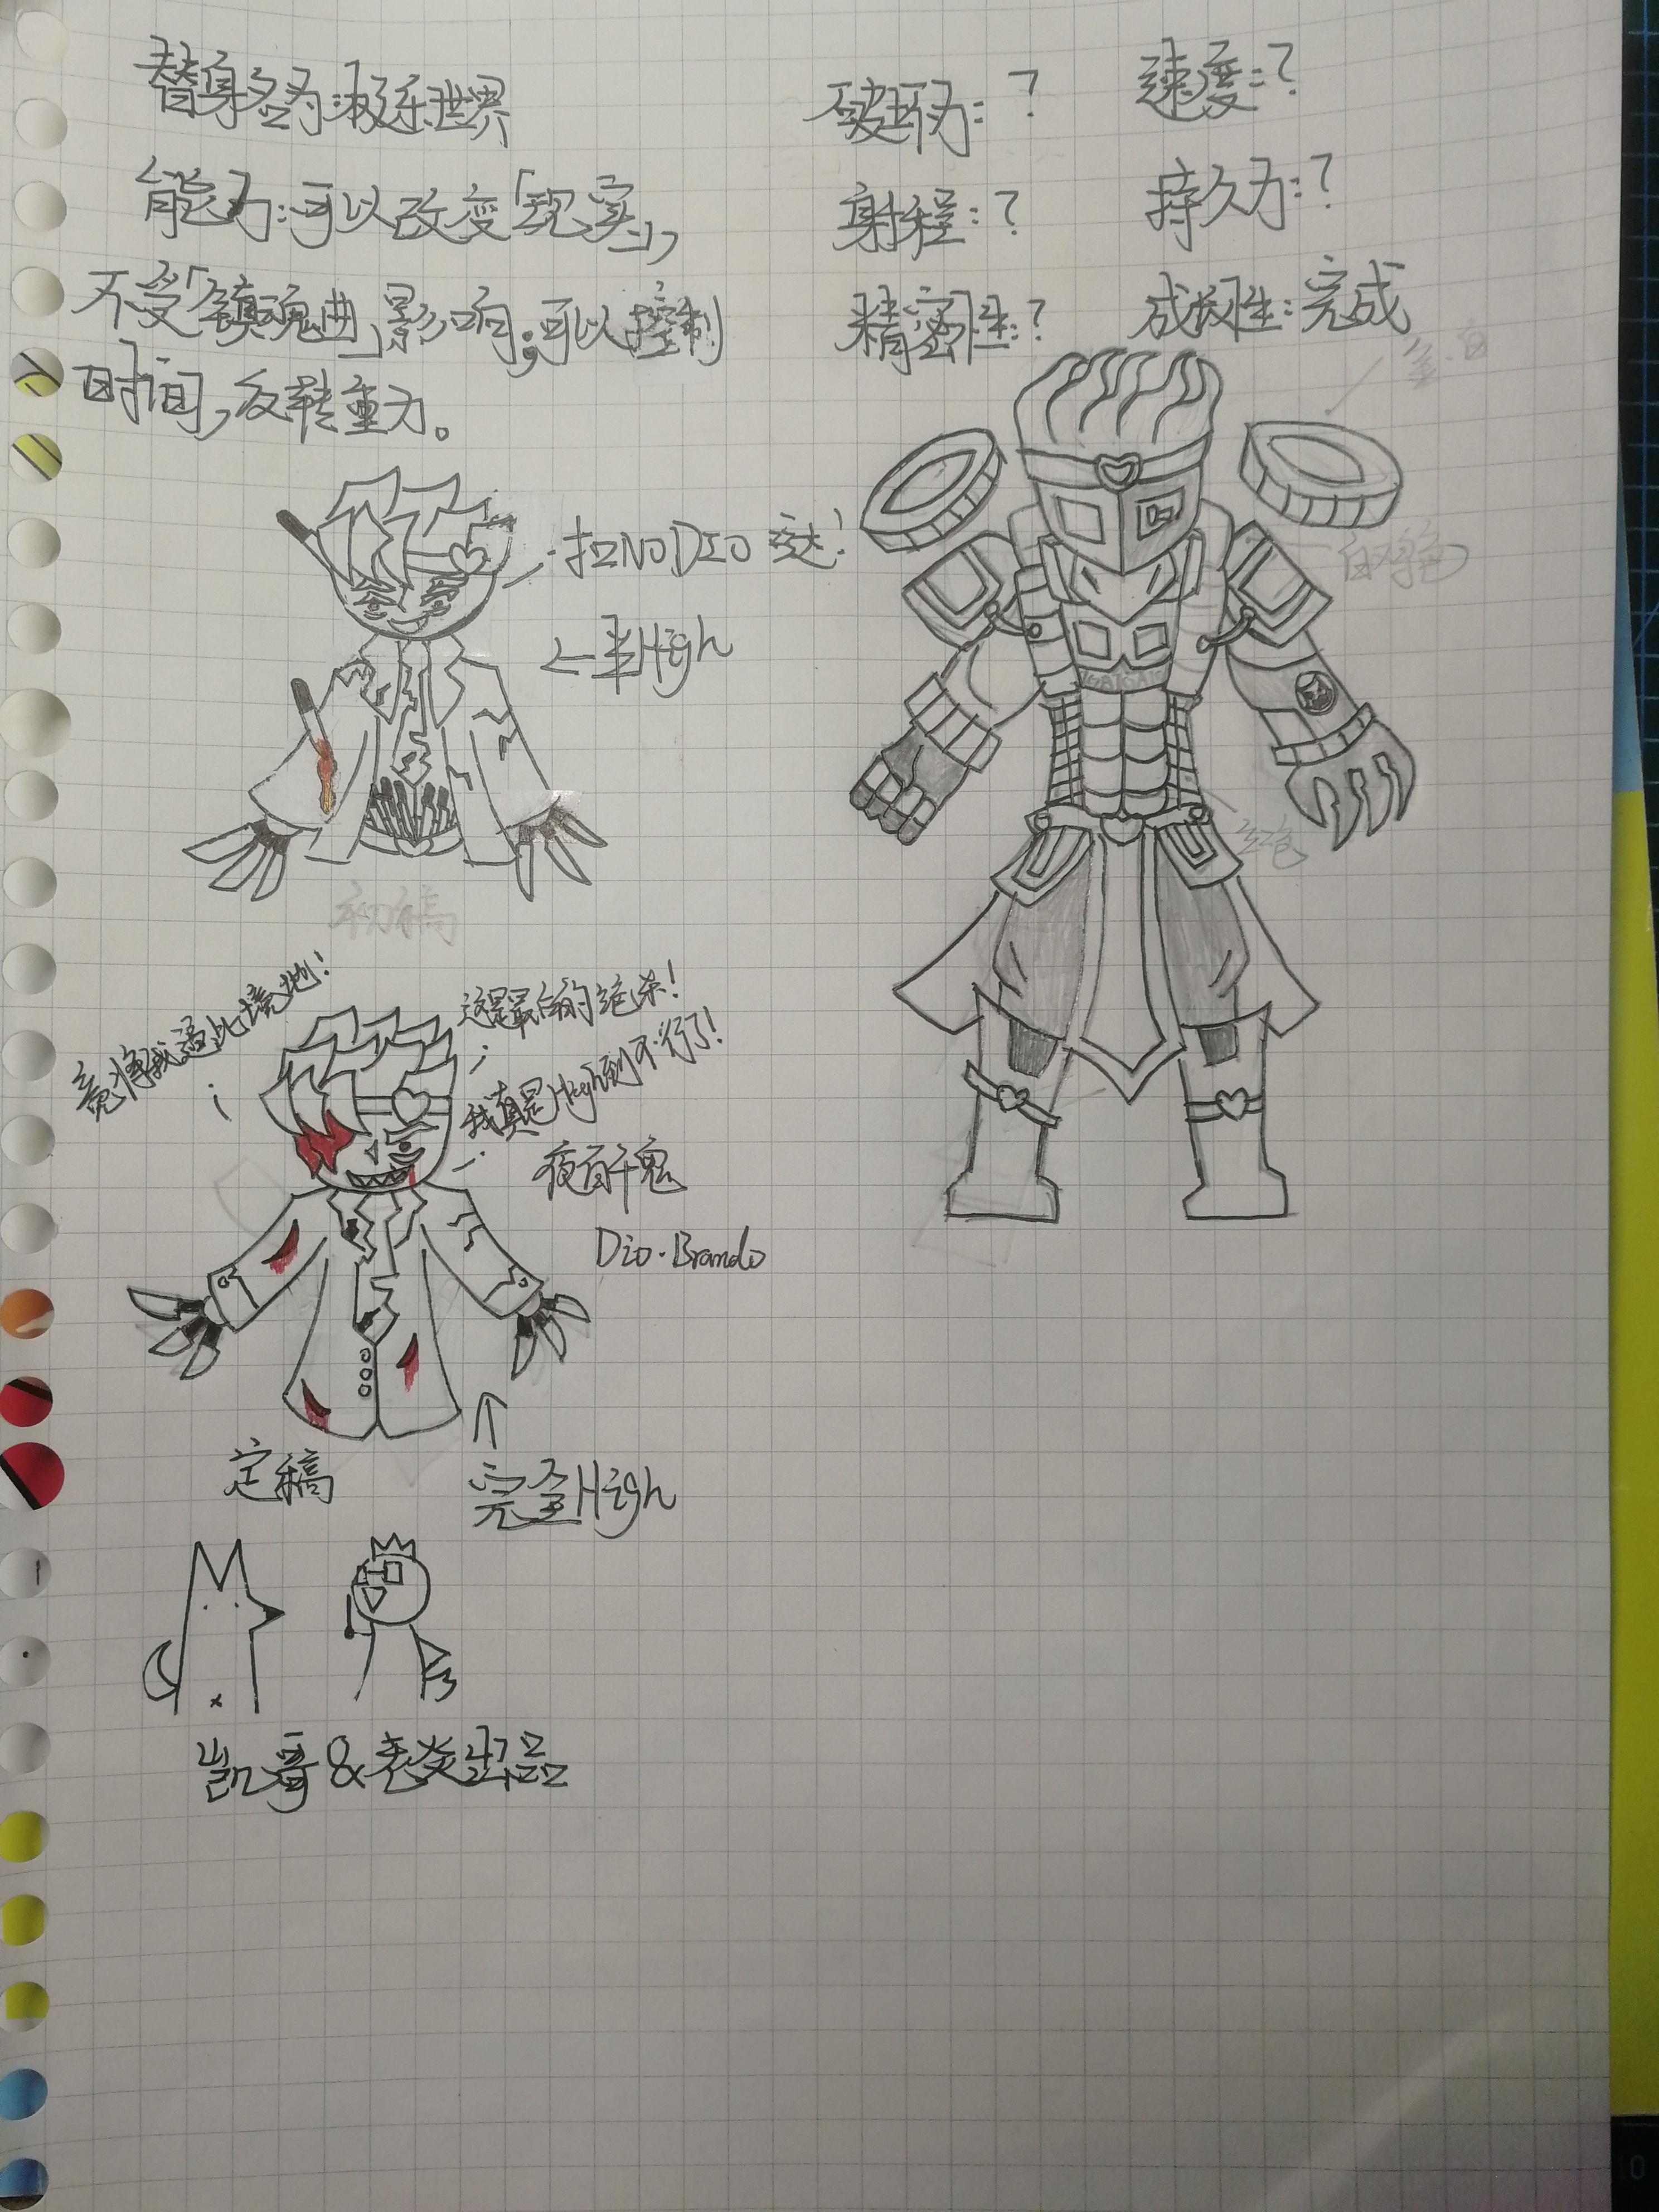 替身名为:极乐世界
能力:可以改变「现实」,
不受「镇魂曲」影响;可以控制
时间,反转重力。
破坏力:?
速度:?
射程:?
持久力:?
精密性:?
成长性:完成
金.白
白.鸡色
红色
扣NODIO 哒!
←半High
初稿
竟将我逼此境地!
这是最后的绝杀!
我真是High到不行了!
夜百千鬼
Dio·Brando
定稿
完全High
凯哥&老炎出品